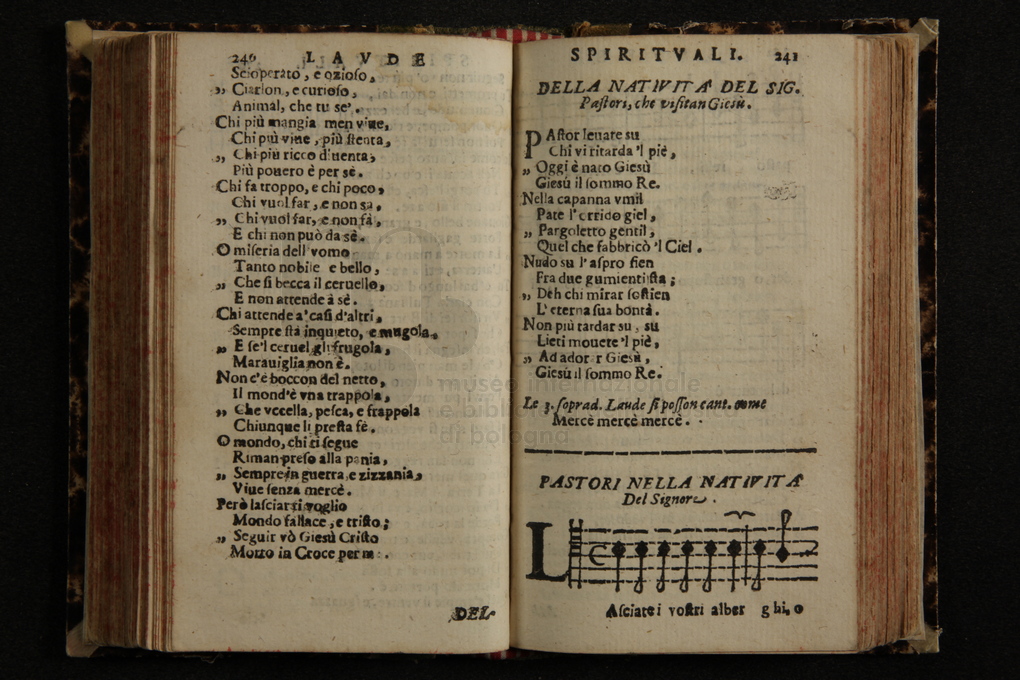 240 LAVDE
Scioperato, e ozioſo,
„ Ciarlon, e curioſo,
Animal, che tu se'.
Chi più mangia men viue,
Chi più viue, più ſtenta,
„ Chi più ricco diuenta,
Più pouero è per sè.
Chi fa troppo, e chi poco,
Chi vuol far, e non sa,
„ Chi vuol far, e non fà,
E chi non può da sè.
O miſeria dell' vomo
Tanto nobile e bello,
„ Che ſi becca il ceruello,
E non attende à sè.
Chi attende a' caſi d'altri,
Sempre ſtà inquieto, e mugola,
„ E ſe'l ceruel gli frugola,
Marauiglia non è.
Non c'è boccon del netto,
Il mond'è vna trappola,
„ Che vccella, peſca, e frappola
Chiunque li preſta fè.
O mondo, chi ti ſegue
Riman preſo alla pania,
„ Sempre in guerra e zizzania,
Viue ſenza mercè.
Però laſciar ti voglio
Mondo fallace, e triſto;
„ Seguir vò Giesù Criſto
Morto in Croce per me.
DEL-
SPIRITVALI. 241
DELLA NATIVITA' DEL SIG.
Paſtori, che viſitan Giesù.
PAſtor leuate su
Chi vi ritarda 'l piè,
„ Oggi è nato Giesù
Giesù il ſommo Re.
Nella capanna vmil
Pate l'orrido giel,
„ Pargoletto gentil,
Quel che fabbricò 'l Ciel.
Nudo su l'aſpro fien
Fra due giumenti ſta;
„ Deh chi mirar ſoſtien
L'eterna ſua bontà.
Non più tardar su, su
Lieti mouete 'l piè,
„ Ad adorar Giesù,
Giesù il ſommo Re.
Le 3. ſoprad. Laude ſi poſſon cant. come
Mercè mercè mercè.
PASTORI NELLA NATIVITA'
Del Signore.
LAſciate i voſtri alber ghi, o
museo internazionale
e biblioteca
di bologna